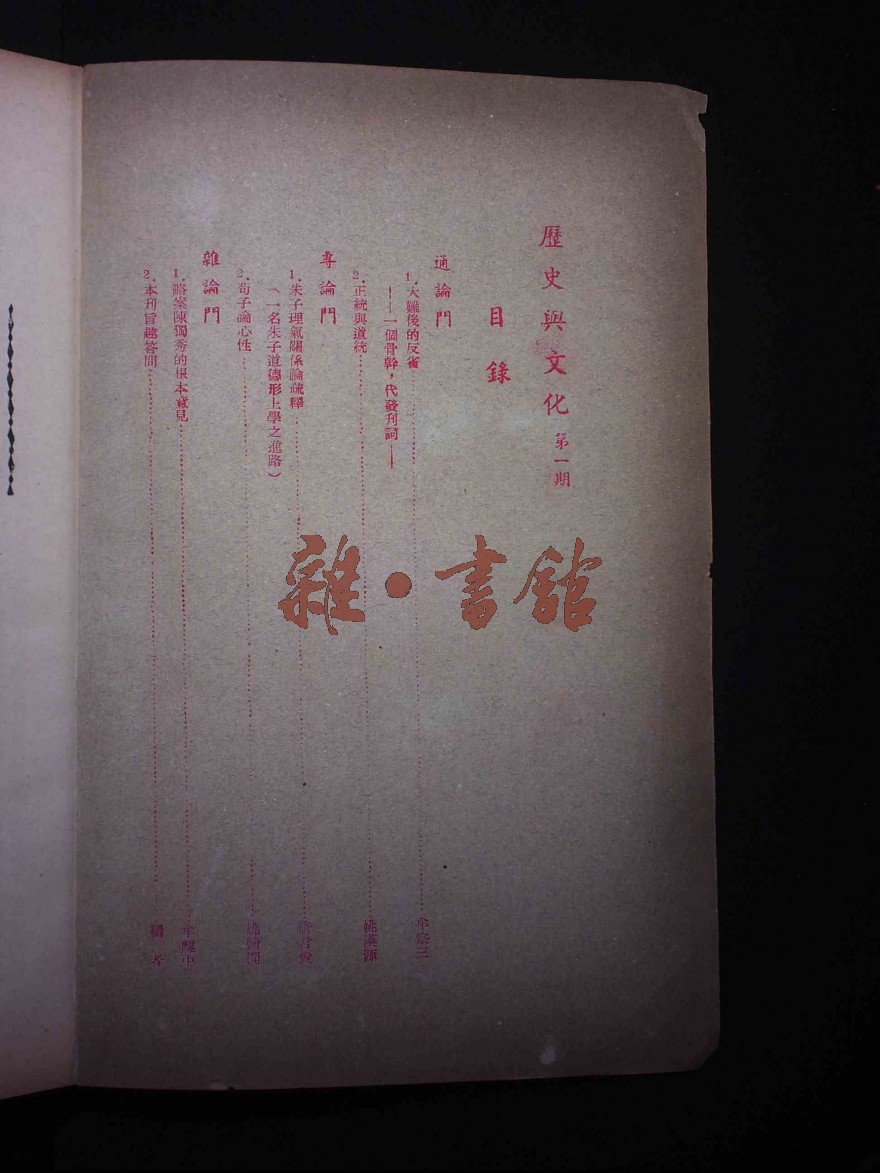 歷史與文化 第一期
目錄
通論門
1.大難後的反省…………牟宗三
——一個骨幹，代發刊詞——
2.正統與道統…………姚漢源
專論門
1.朱子理氣關係論疏釋…………唐君毅
（一名朱子道德形上學之進路）
2.荀子論心性…………
雜論門
1.略案陳獨秀的根本意見…………牟離中
2.本刊旨趣答問…………編者
雜·書館